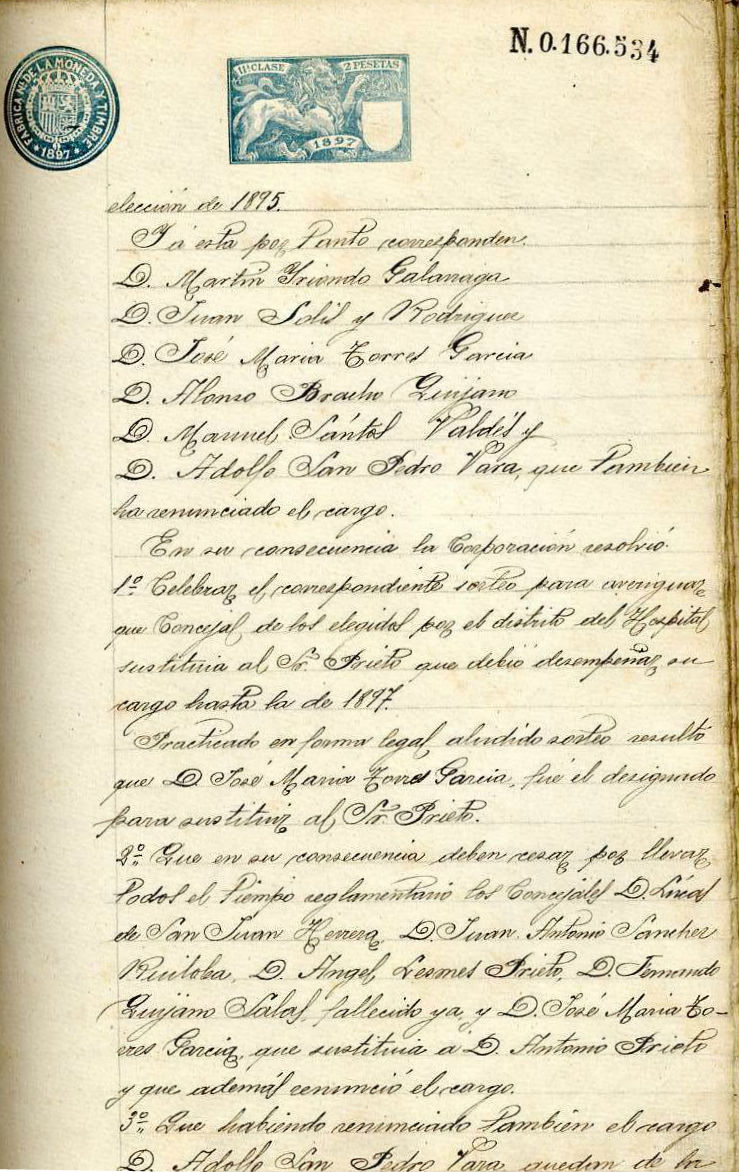 N.0.166.534
FÁBRICA NL. DE LA MONEDA Y TIMBRE
* 1897 *
11ª CLASE 2 PESETAS
1897
elección de 1895.
Y á esta por tanto corresponden.
D. Martin Yriondo Galanaga
D. Juan Solis y Rodriguez
D. José Maria Torres Garcia
D. Alonso Bracho Quijano
D. Manuel Santos Valdés y
D. Adolfo San Pedro Vara, que tambien
ha renunciado el cargo.
En su consecuencia la Corporación resolvió.
1º Celebrar el correspondiente sorteo para averiguar
que Concejal de los elegidos por el distrito del Hospital
sustituia al Sr. Prieto que debió desempeñar su
cargo hasta la de 1897.
Practicado en forma legal aludido sorteo resultó
que D. José Maria Torres Garcia, fué el designado
para sustituir al Sr. Prieto.
2º Que en su consecuencia deben cesar por llevar
todos el tiempo reglamentario los Concejales D. Lucas
de San Juan Herrera, D. Juan Antonio Sanchez
Ruiloba, D. Angel Lesmes Prieto, D. Fernando
Quijano Salas, fallecido ya, y D. José Maria To-
rres Garcia, que sustituia a D. Antonio Prieto
y que además renunció el cargo.
3º Que habiendo renunciado tambien el cargo
D. Adolfo San Pedro Vara quedan de la